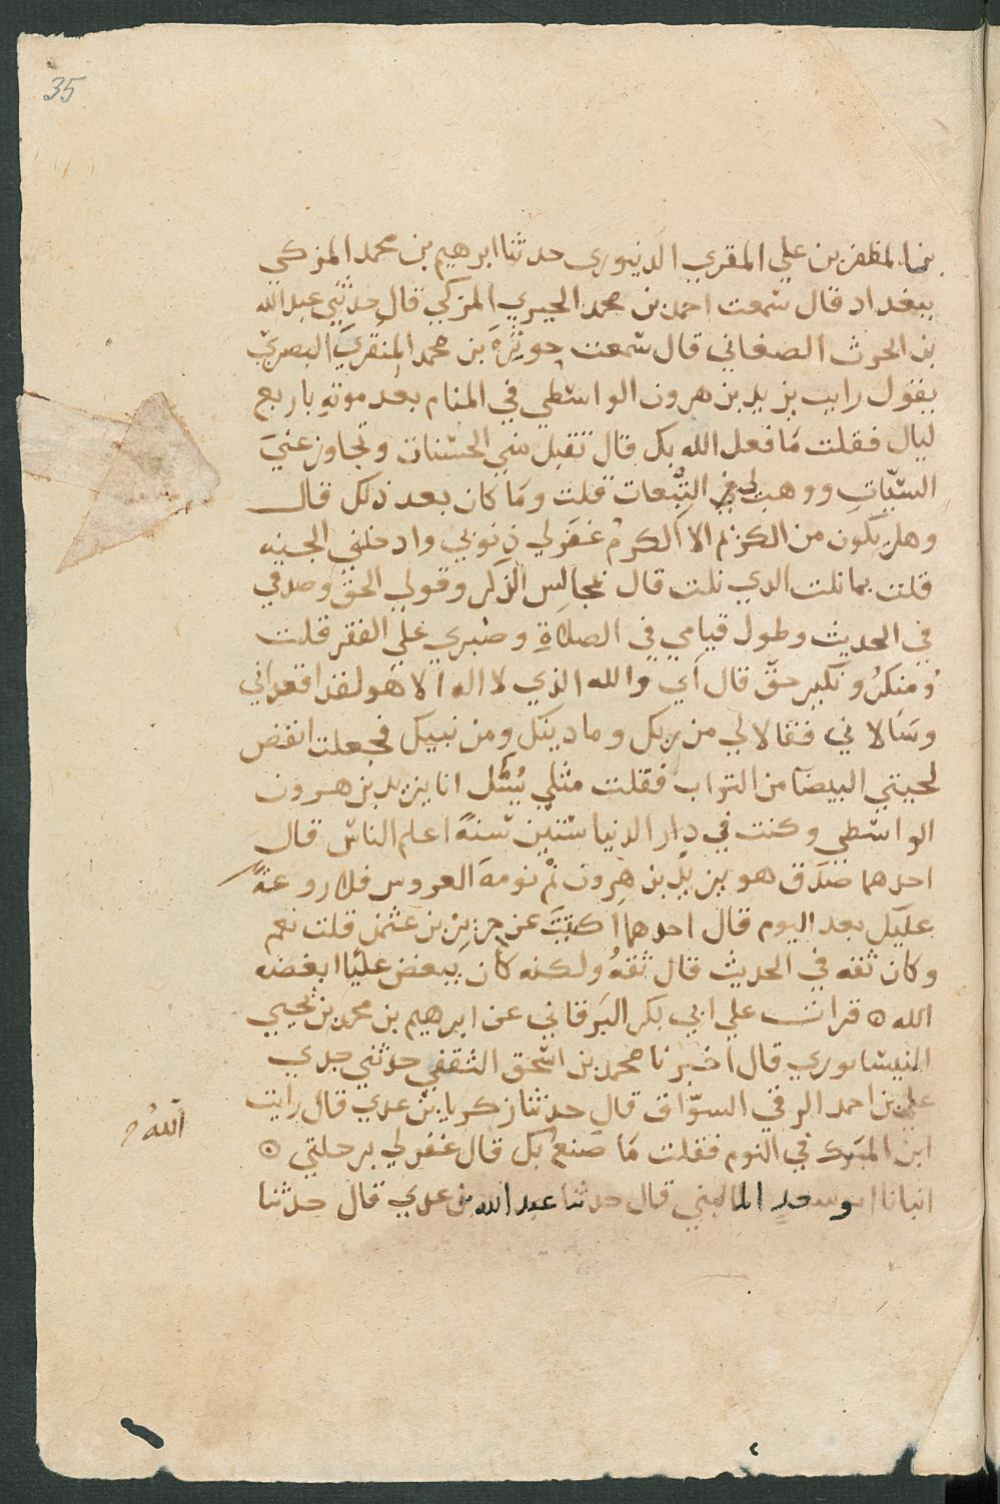 35
بن المظفر بن علي المقري الدينوري حدثنا ابرهيم بن محمد المزكي
ببغداد قال سمعت احمد بن محمد الحيري المزكي قال حدثني عبد الله
بن الحرث الصغاني قال سمعت حوثرة بن محمد المنقري البصري
يقول رايت يزيد بن هرون الواسطي في المنام بعد موته باربع
ليال فقلت ما فعل الله بك قال تقبل مني الحسنات وتجاوز عني
السيّات ووهب لي التبعات قلت وما كان بعد ذلك قال
وهل يكون من الكريم الا الكرم غفر لي ذنوبي وادخلني الجنه
قلت بما نلت الذي نلت قال بمجالس الذكر وقولي الحق وصدقي
في الحديث وطول قيامي في الصلاة وصبري علي الفقر قلت
ومنكر ونكير حق قال اي والله الذي لا اله الا هو لقد اقعداني
وسالاني فقالا لي من ربك وما دينك ومن نبيك فجعلت انفض
لحيتي البيضا من التراب فقلت مثلي يُسئل انا يزيد بن هرون
الواسطي وكنت في دار الدنيا ستين سنة اعلم الناس قال
احدهما صدق هو يزيد بن هرون نم نومة العروس فلا روعة
عليك بعد اليوم قال احدهما اكتبت عن حريز بن عثمن قلت نعم
وكان ثقه في الحديث قال ثقة ولكنه كان يبغض عليا ابغضه
الله ⊙ قرات علي ابي بكر البرقاني عن ابرهيم بن محمد بن يحيي
النيسابوري قال اخبرنا محمد بن اسحق الثقفي حدثني جدي
علي بن احمد الرقي السوّاق قال حدثنا زكريا بن عدي قال رايت
ابن المبرك في النوم فقلت ما صنع بك قال غفر لي برحلتي ⊙
الله
انبانا ابو سعد الماليني قال حدثنا عبد الله بن عدي قال حدثنا